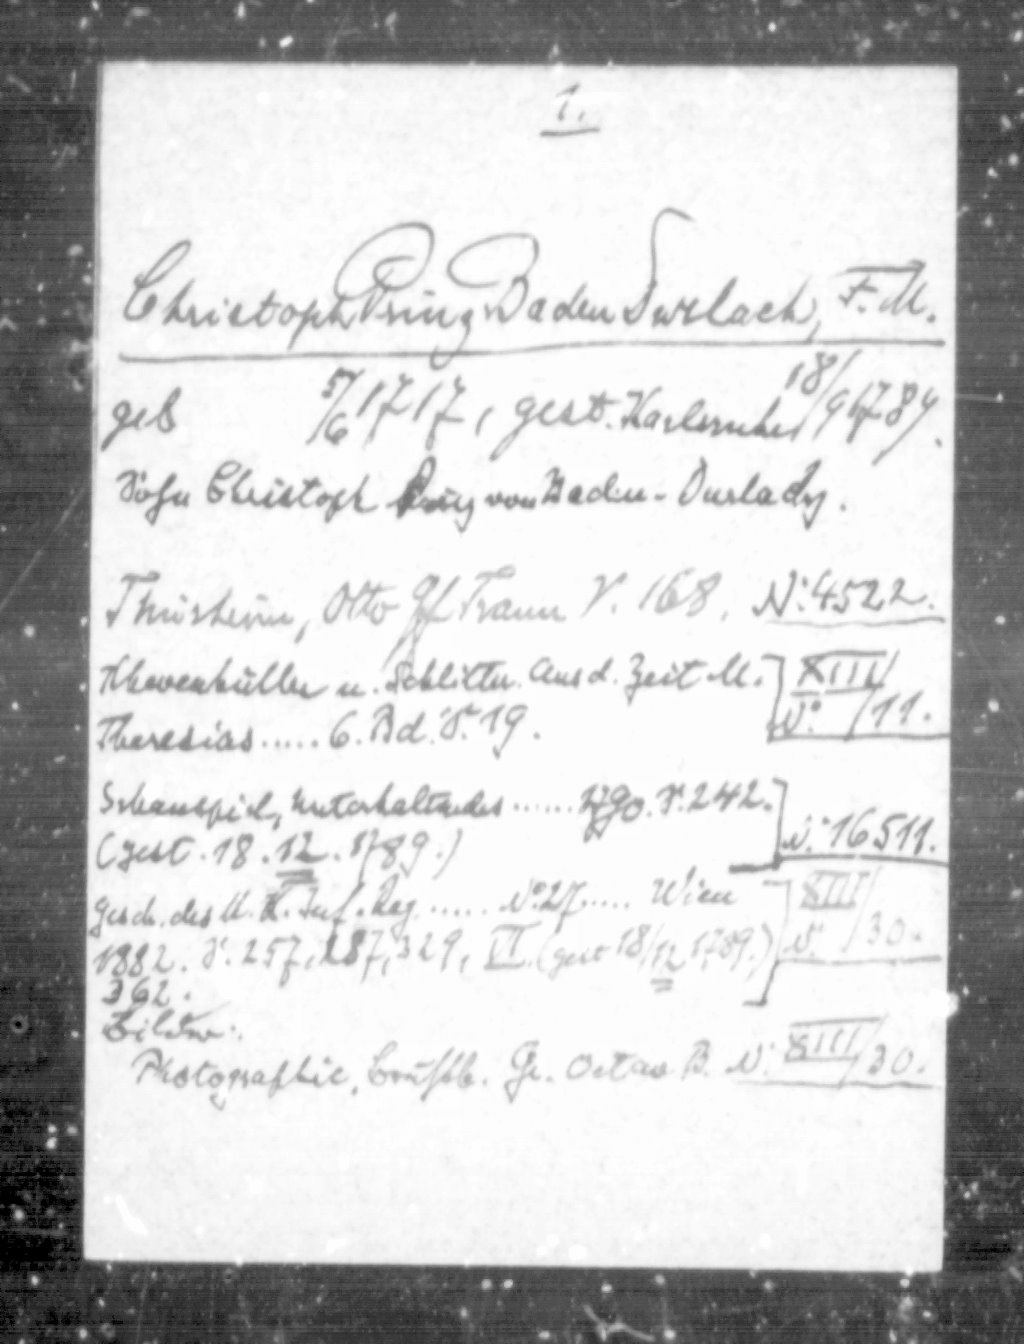 1.
Christoph Prinz Baden Durlach, F. M.
geb 5/6 1717, gest. Karlsruhe 18/9 1789.
Sohn Christoph Prinz von Baden-Durlach.
Thürheim, Otto Gf Traun S. 168. N: 4522.
Khevenhüller u. Schlitter. Aus d. Zeit M. XIII/
Theresias ..... 6. Bd. S. 19. N° /11.
Schauspiel, Unterhaltendes ...... 1790. S. 242.
(gest. 18. 12. 1789.) N: 16511.
Gesch. des K. K. Inf. Reg. ..... N° 27 ..... Wien XIII/
1882. S. 257, 287, 329, VI. (gest 18/12 1789.) N: /30.
362.
Bilder:
Photographie, Brustb. Gr. Octav B. N: XIII/30.